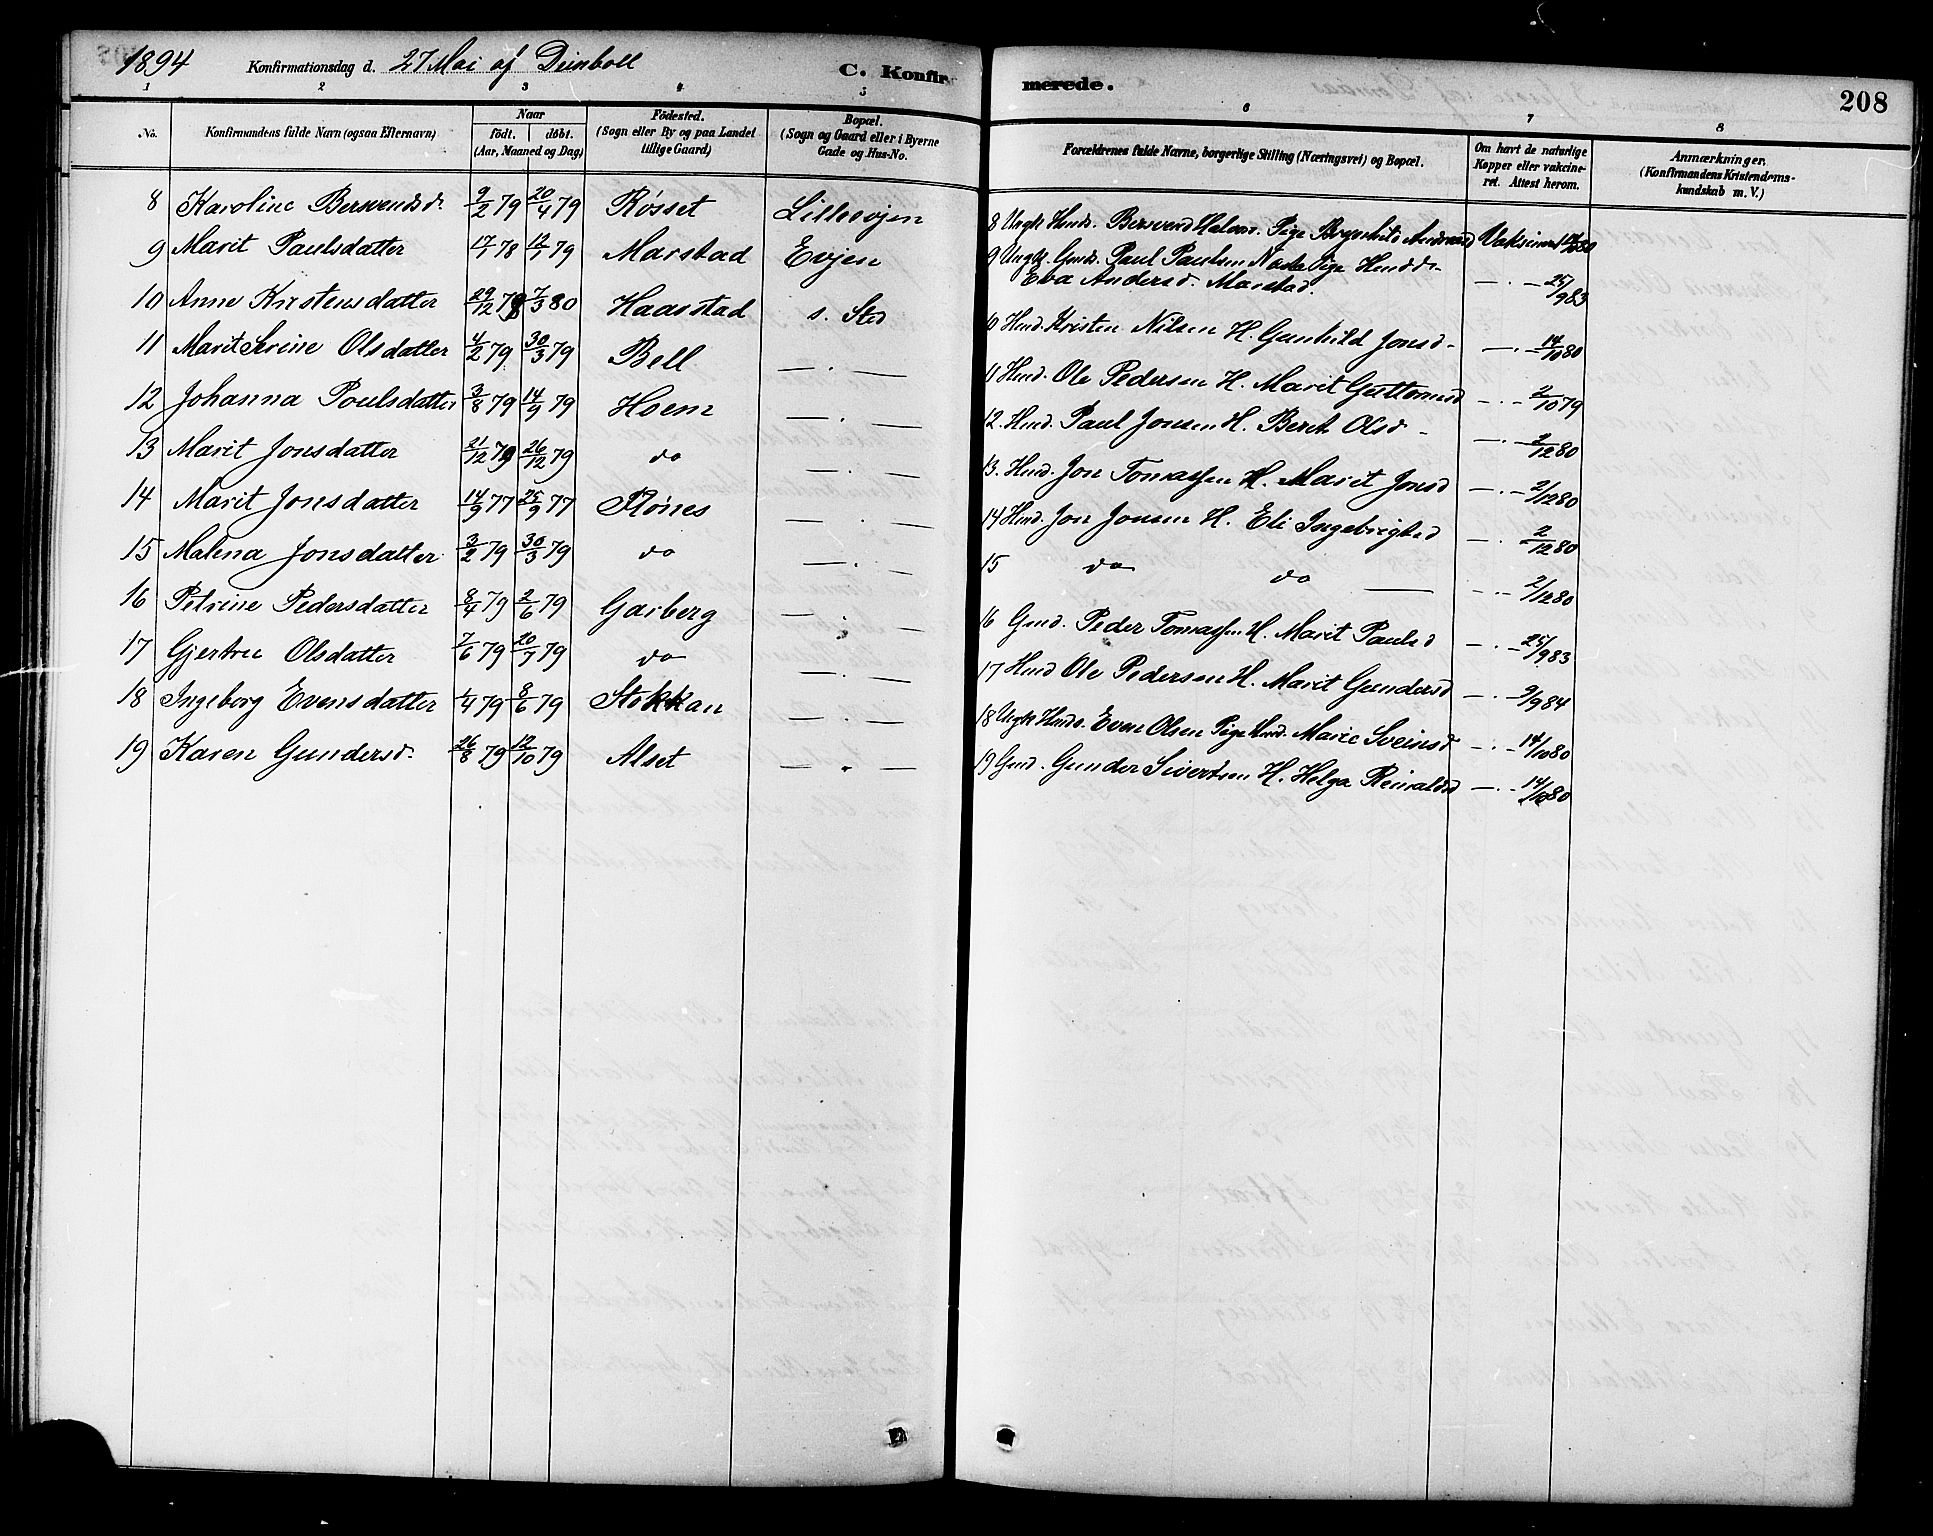 1894 Konfirmationsdag d. 27 Mai af Deinboll C. Konfir-
merede. 208
1 2 3 4 5 6 7 8
No. Konfirmandens fulde Navn (ogsaa Efternavn) Naar født. døbt. (Aar, Maaned og Dag) Fødested. (Sogn eller By og paa Landet tillige Gaard) Bopæl. (Sogn og Gaard eller i Byerne Gade og Hus-No.
Forældrenes fulde Navne, borgerlige Stilling (Næringsvei) og Bopæl. Om havt de naturlige Kopper eller vakcineret. Attest herom. Anmærkninger. (Konfirmandens Kristendomskundskab m. V.)
8 Karoline Bersvendsd. 9/2 79 20/4 79 Røsset Lilleevjen
9 Marit Paulsdatter 17/7 78 12/7 79 Marstad Evjen
10 Anne Kristensdatter 29/12 79 7/3 80 Haarstad s. Sted
11 Marit Serine Olsdatter 4/2 79 30/3 79 Bell — . —
12 Johanna Poulsdatter 3/8 79 14/9 79 Hoem — . —
13 Marit Jonsdatter 21/12 79 26/12 79 do — . —
14 Marit Jonsdatter 14/9 77 25/9 77 Rønes — . —
15 Malena Jonsdatter 3/2 79 30/3 79 do — . —
16 Petrine Pedersdatter 8/4 79 2/6 79 Garberg — . —
17 Gjertru Olsdatter 7/6 79 20/7 79 do — . —
18 Ingeborg Evensdatter 4/4 79 8/6 79 Stokkan — . —
19 Karen Gundersd. 26/8 79 12/10 79 Alset — . —
8 Ungk Husds. Bersvend Halvors. Pige Vaksineret 14/10 80
9 Ungk. Gmds. Paul Paulsen Pige Husdd.
Eva Andersd. Marstad. — . — 25/9 83
10 Husd. Kristen Nilsen H. Gunhild Jonsd. — . — 14/10 80
11 Husd. Ole Pedersen H. Marit Guttormsd — . — 2/10 79
12. Husd. Paul Jonsen H. Berit Olsd. — . — 2/12 80
13. Husd. Jon Tomassen H. Marit Jonsd — . — 2/12 80
14 Husd. Jon Jonsen H. Eli Ingebrigtsd — . — 2/12 80
15 do do — — . — 2/12 80
16 Gmd. Peder Tomassen H. Marit Paulsd — . — 25/9 83
17 Husd Ole Pedersen H. Marit Gundersd — . — 9/9 84
18 Ungk Husds. Even Olsen Pige Husd. Marie Sveinsd — . — 14/10 80
19 Gmd. Gunder Sivertsen H. Helga Reinaldsd — . — 14/10 80